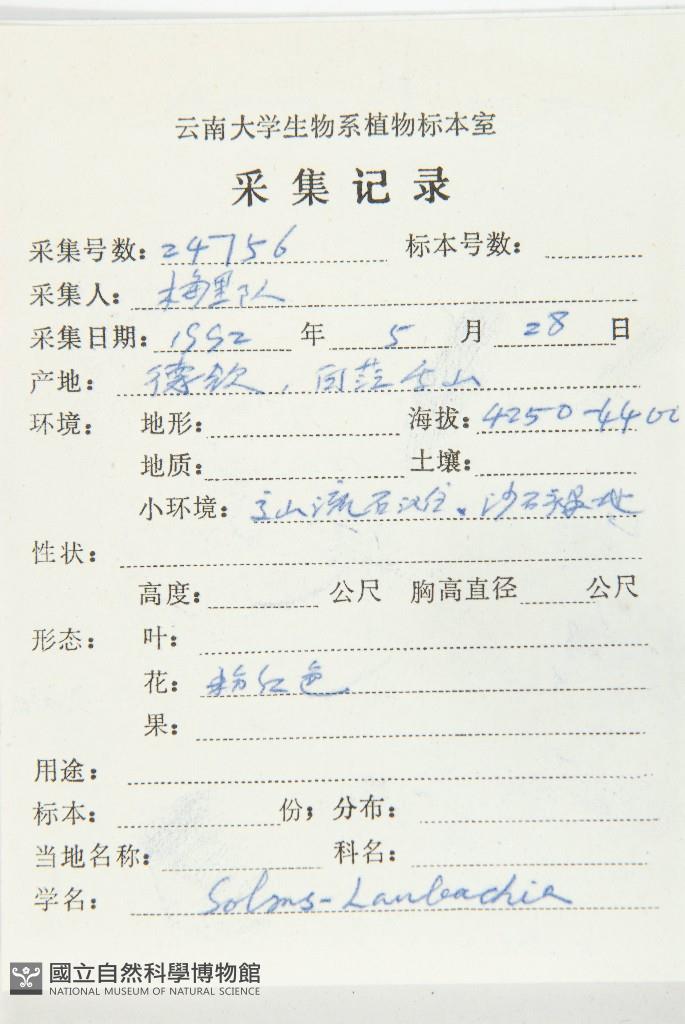 云南大学生物系植物标本室
采集记录
采集号数: 24756 标本号数:
采集人: 梅里队
采集日期: 1992 年 5 月 28 日
产地: 德钦, 白茫雪山
环境: 地形: 海拔: 4250-4400
地质: 土壤:
小环境: 高山流石滩, 沙石裸地
性状:
高度: 公尺 胸高直径 公尺
形态: 叶:
花: 粉红色
果:
用途:
标本: 份; 分布:
当地名称: 科名:
学名: Solms-Laubachia
國立自然科學博物館
NATIONAL MUSEUM OF NATURAL SCIENCE